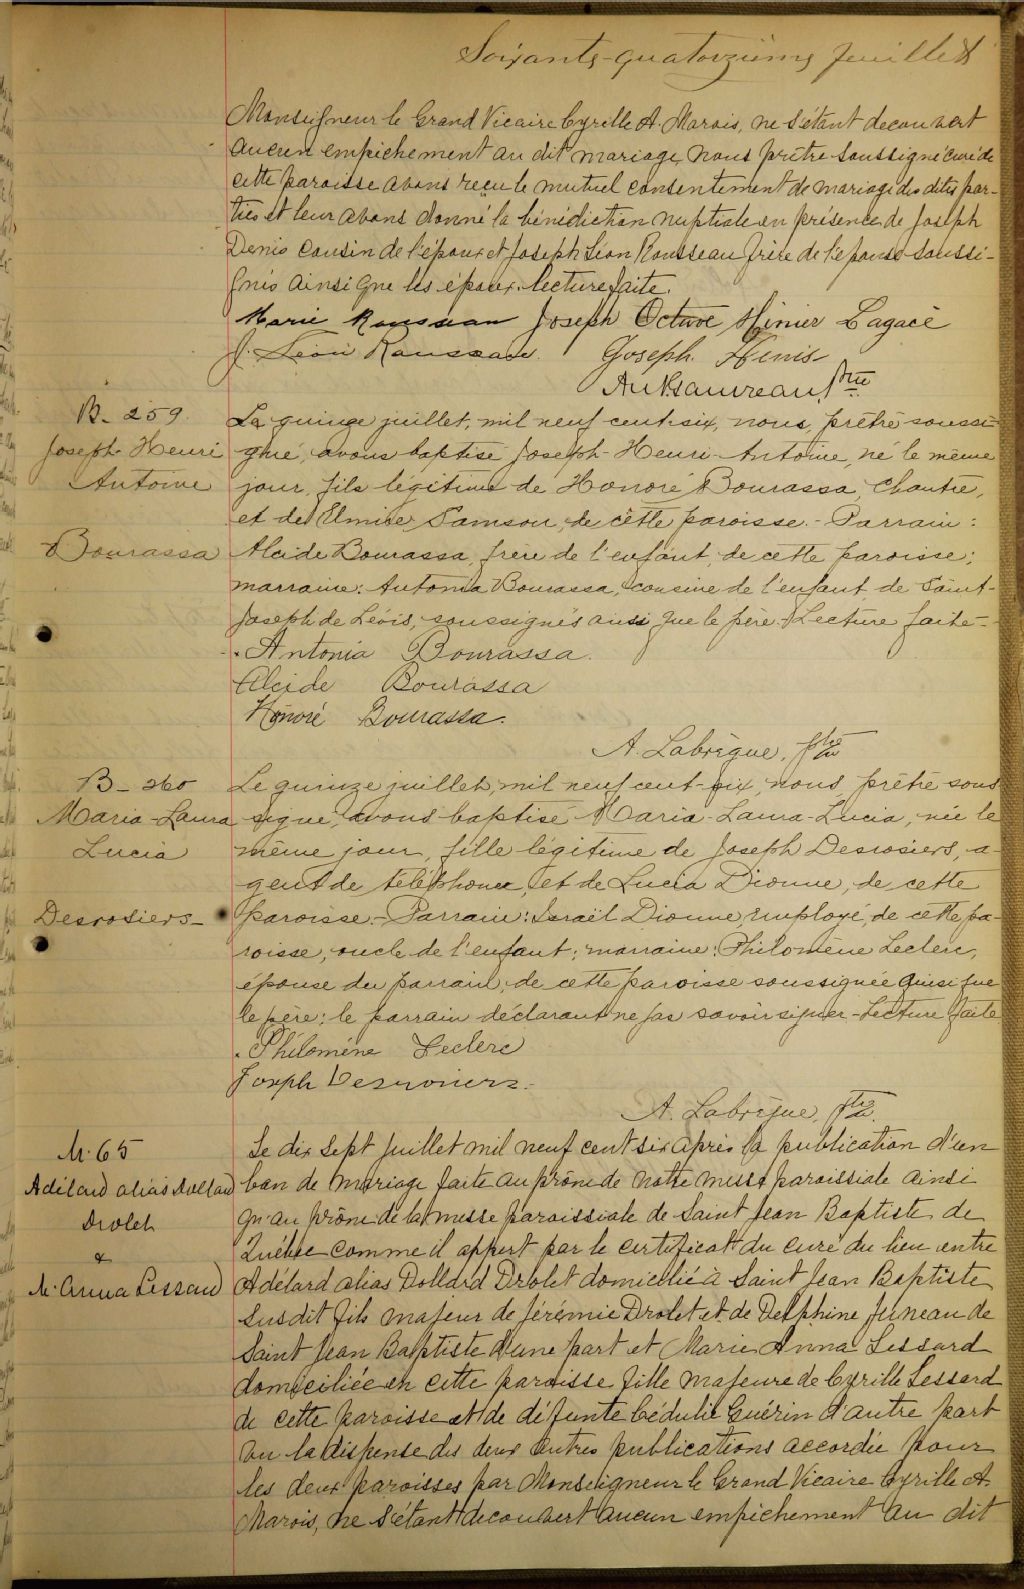 Soixante-quatorzième feuillet
Monseigneur le Grand Vicaire Cyrille A. Marois, ne s'étant decouvert
aucun empêchement au dit mariage, Nous prêtre soussigné curé de
cette paroisse avons reçu le mutuel consentement de mariage des dites par-
ties et leur avons donné la bénédiction nuptiale en présence de Joseph
Denis cousin de l'époux et Joseph Léon Rousseau frère de l'épouse soussi-
gnés ainsi que les époux. lecture faite.
Marie Rousseau Joseph Octave Minier Lagacé
J. Léon Rousseau. Joseph Denis
Ptre
B- 259.
Joseph-Henri
Antoine
Bourassa
Le quinze juillet, mil neuf cent-six, nous, prêtre soussi-
gné, avons baptisé Joseph-Henri-Antoine, né le même
jour, fils légitime de Honoré Bourassa, chantre,
et de Elmire Samson, de cette paroisse.- Parrain:
Alcide Bourassa, frère de l'enfant, de cette paroisse;
marraine: Antonia Bourassa, cousine de l'enfant, de Saint-
Joseph de Lévis, soussignés ainsi que le père. Lecture faite-
Antonia Bourassa.
Alcide Bourassa
Honoré Bourassa.
A. Labrègue, ptre
B- 260
Maria-Laura
Lucia
Desrosiers-
Le quinze juillet, mil neuf cent-six, nous, prêtre sous
signé, avons baptisé Maria-Laura-Lucia, née le
même jour, fille légitime de Joseph Desrosiers, a-
gent de téléphone, et de Lucia Dionne, de cette
paroisse.- Parrain: Israël Dionne employé, de cette pa-
roisse, oncle de l'enfant; marraine: Philomène Leclerc,
épouse du parrain, de cette paroisse soussignée ainsi que
le père; le parrain déclarant ne pas savoir signer - Lecture faite
Philomène Leclerc
Joseph Desrosiers.
A. Labrègue, ptre.
M. 65
Adélard alias Dollard
Drolet
&
M. Anna Lessard
Le dix sept juillet mil neuf cent six après la publication d'un
ban de mariage faite au prône de notre messe paroissiale ainsi
qu'au prône de la messe paroissiale de Saint Jean Baptiste de
Québec comme il appert par le certificat du curé du lieu entre
Adélard alias Dollard Drolet domicilié à Saint Jean Baptiste
susdit fils majeur de Jérémie Drolet et de Delphine Juneau de
Saint Jean Baptiste d'une part et Marie Anna Lessard
domiciliée en cette paroisse fille majeure de Cyrille Lessard
de cette paroisse et de défunte Cédulie Guérin d'autre part
vu la dispense des deux autres publications accordée pour
les deux paroisses par Monseigneur le Grand Vicaire Cyrille A.
Marois, ne s'étant decouvert aucun empêchement au dit